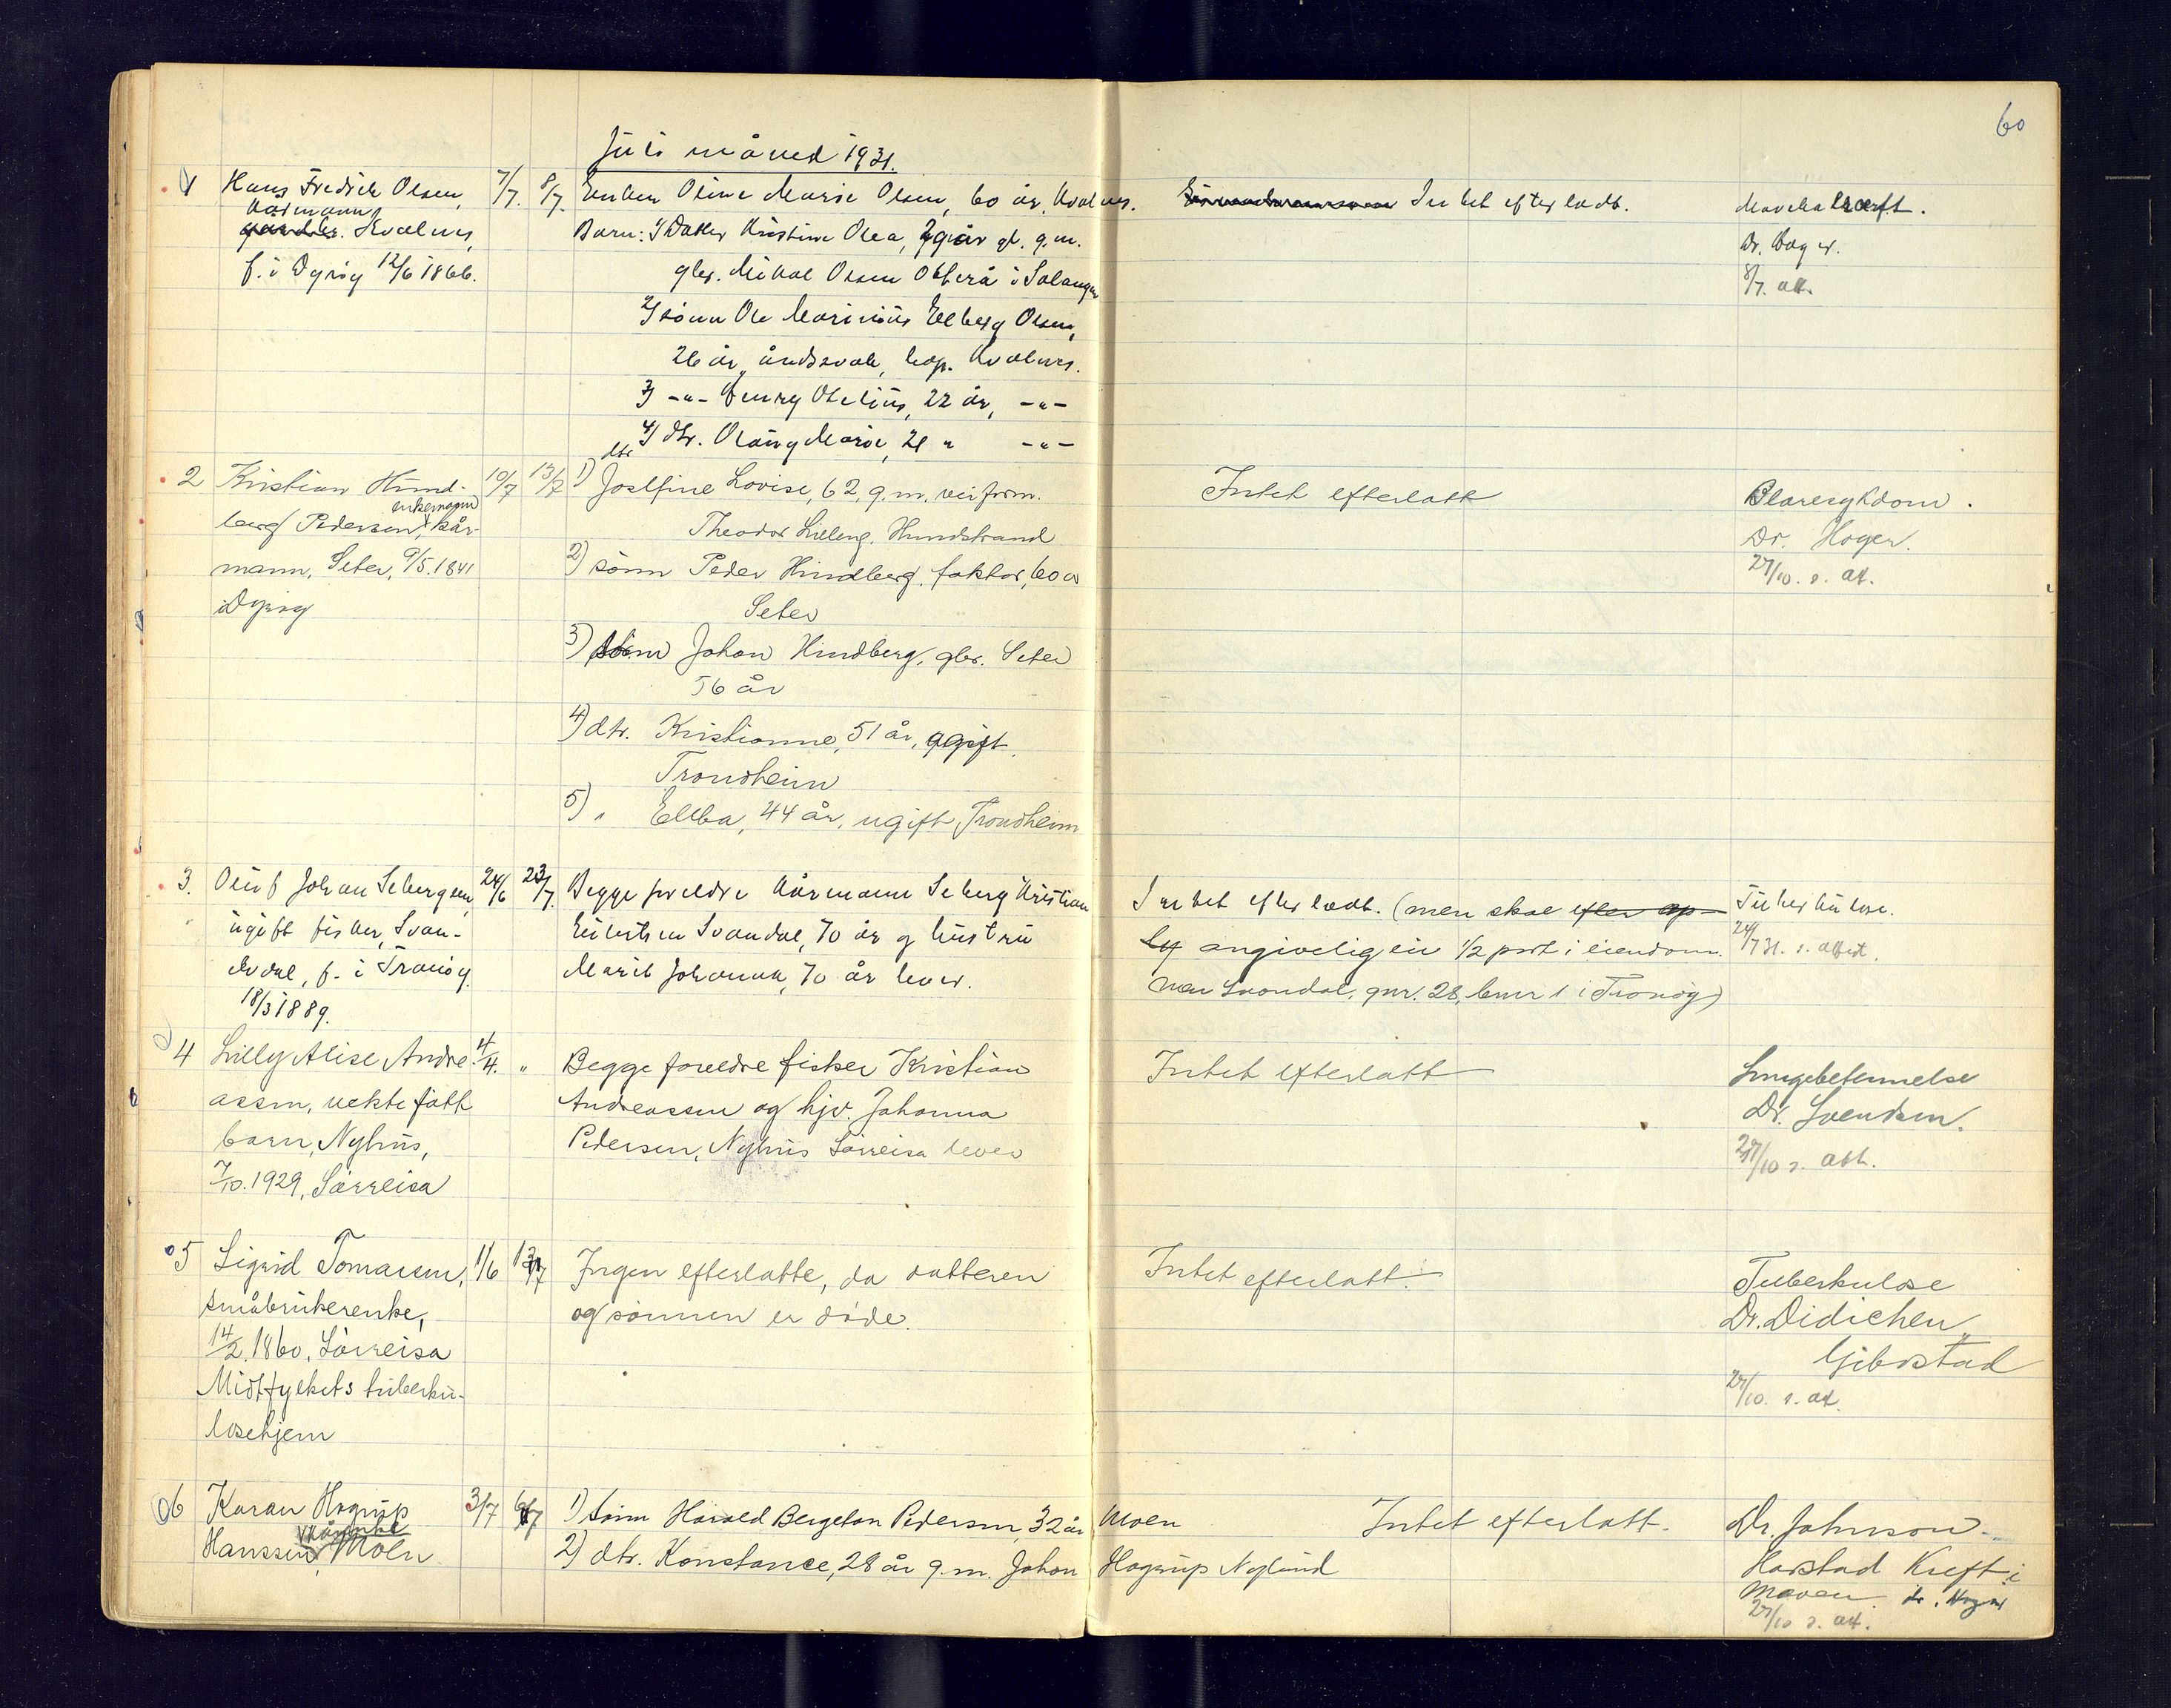 60
Juli måned 1931.
1 Hans Fredrik Olsen, 7/7. 8/7. Enken Oline Marie Olsen, 60 år, Kvalnes. Intet efterladt. Mavekræft.
kårmann, Kvalnes, Barn: 1) Datter Kristine Olea, år gl. g.m. Dr. Høger.
f. i Dyrøy 12/6 1866. gbr. Mikal Olsen i Salangen 8/7. att.
2) sønn Ole Marinius Elberg Olsen,
26 år, åndssvak, Kvalnes.
3) -"- Henry Otelius, 22 år, -"-
4) dtr. Marie, 21 " -"-
2 Kristian Hind- 10/7 13/7 dtr 1) Joselfine Lovise, 62, g.m. Intet efterlatt Blæresykdom.
enkemann
berg Pedersen, kår- Theodor Lilleng. Hundstrand Dr. Høger.
mann, Seter, 9/5. 1841 2) sønn Peder Hindberg, faktor, 60 år 27/10. s. att.
i Dyrøy Seter
3) sønn Johan Hindberg, gbr. Seter
56 år
4) dtr. Kristianne, 51 år, ugift,
Trondheim
5) " Ellba, 44 år, ugift Trondheim
3. Oluf Johan Sebergsen, 24/6 23/7. Begge foreldre kårmann Seberg Kristian Intet efterladt. (men skal efter op- Tuberkulose.
ugift fisker, Svan- Svandal, 70 år og hustru angivelig eie 1/2 part i eiendom- 24/7 31. s. attest.
dal, f. i Tranøy Marit Johanna, 70 år lever. men Svandal, gnr. 28, bnr 1 i Tranøy)
18/3 1889.
4 Lilly Alise Andre- 4/4. " Begge foreldre fisker Kristian Intet efterlatt Lungebetennelse
assen, uekte født Andreassen og hjv. Johanna Dr. Svendsen.
barn, Nyhus, Pedersen, Nyhus Sørreisa lever 27/10 s. att.
7/10. 1929, Sørreisa
5 Sigrid Tomassen, 1/6 Ingen efterlatte, da datteren Intet efterlatt. Tuberkulose
småbrukerenke, og sønnen er døde. Dr. Didichen,
14/2. 1860, Sørreisa Gibostad
Midtfylkets tuberku- 27/10. s. att.
losehjem
6 Karan Hogrup 3/7 1) sønn Harald Bergeton Pedersen, 32 år Moen Intet efterlatt. Dr. Johnson
kårenke
Hanssen, Moen 2) dtr. Konstance, 28 år g.m. Johan Hagerup Nylund Harstad Kreft i
maven. dr. Høger
27/10 s. att.